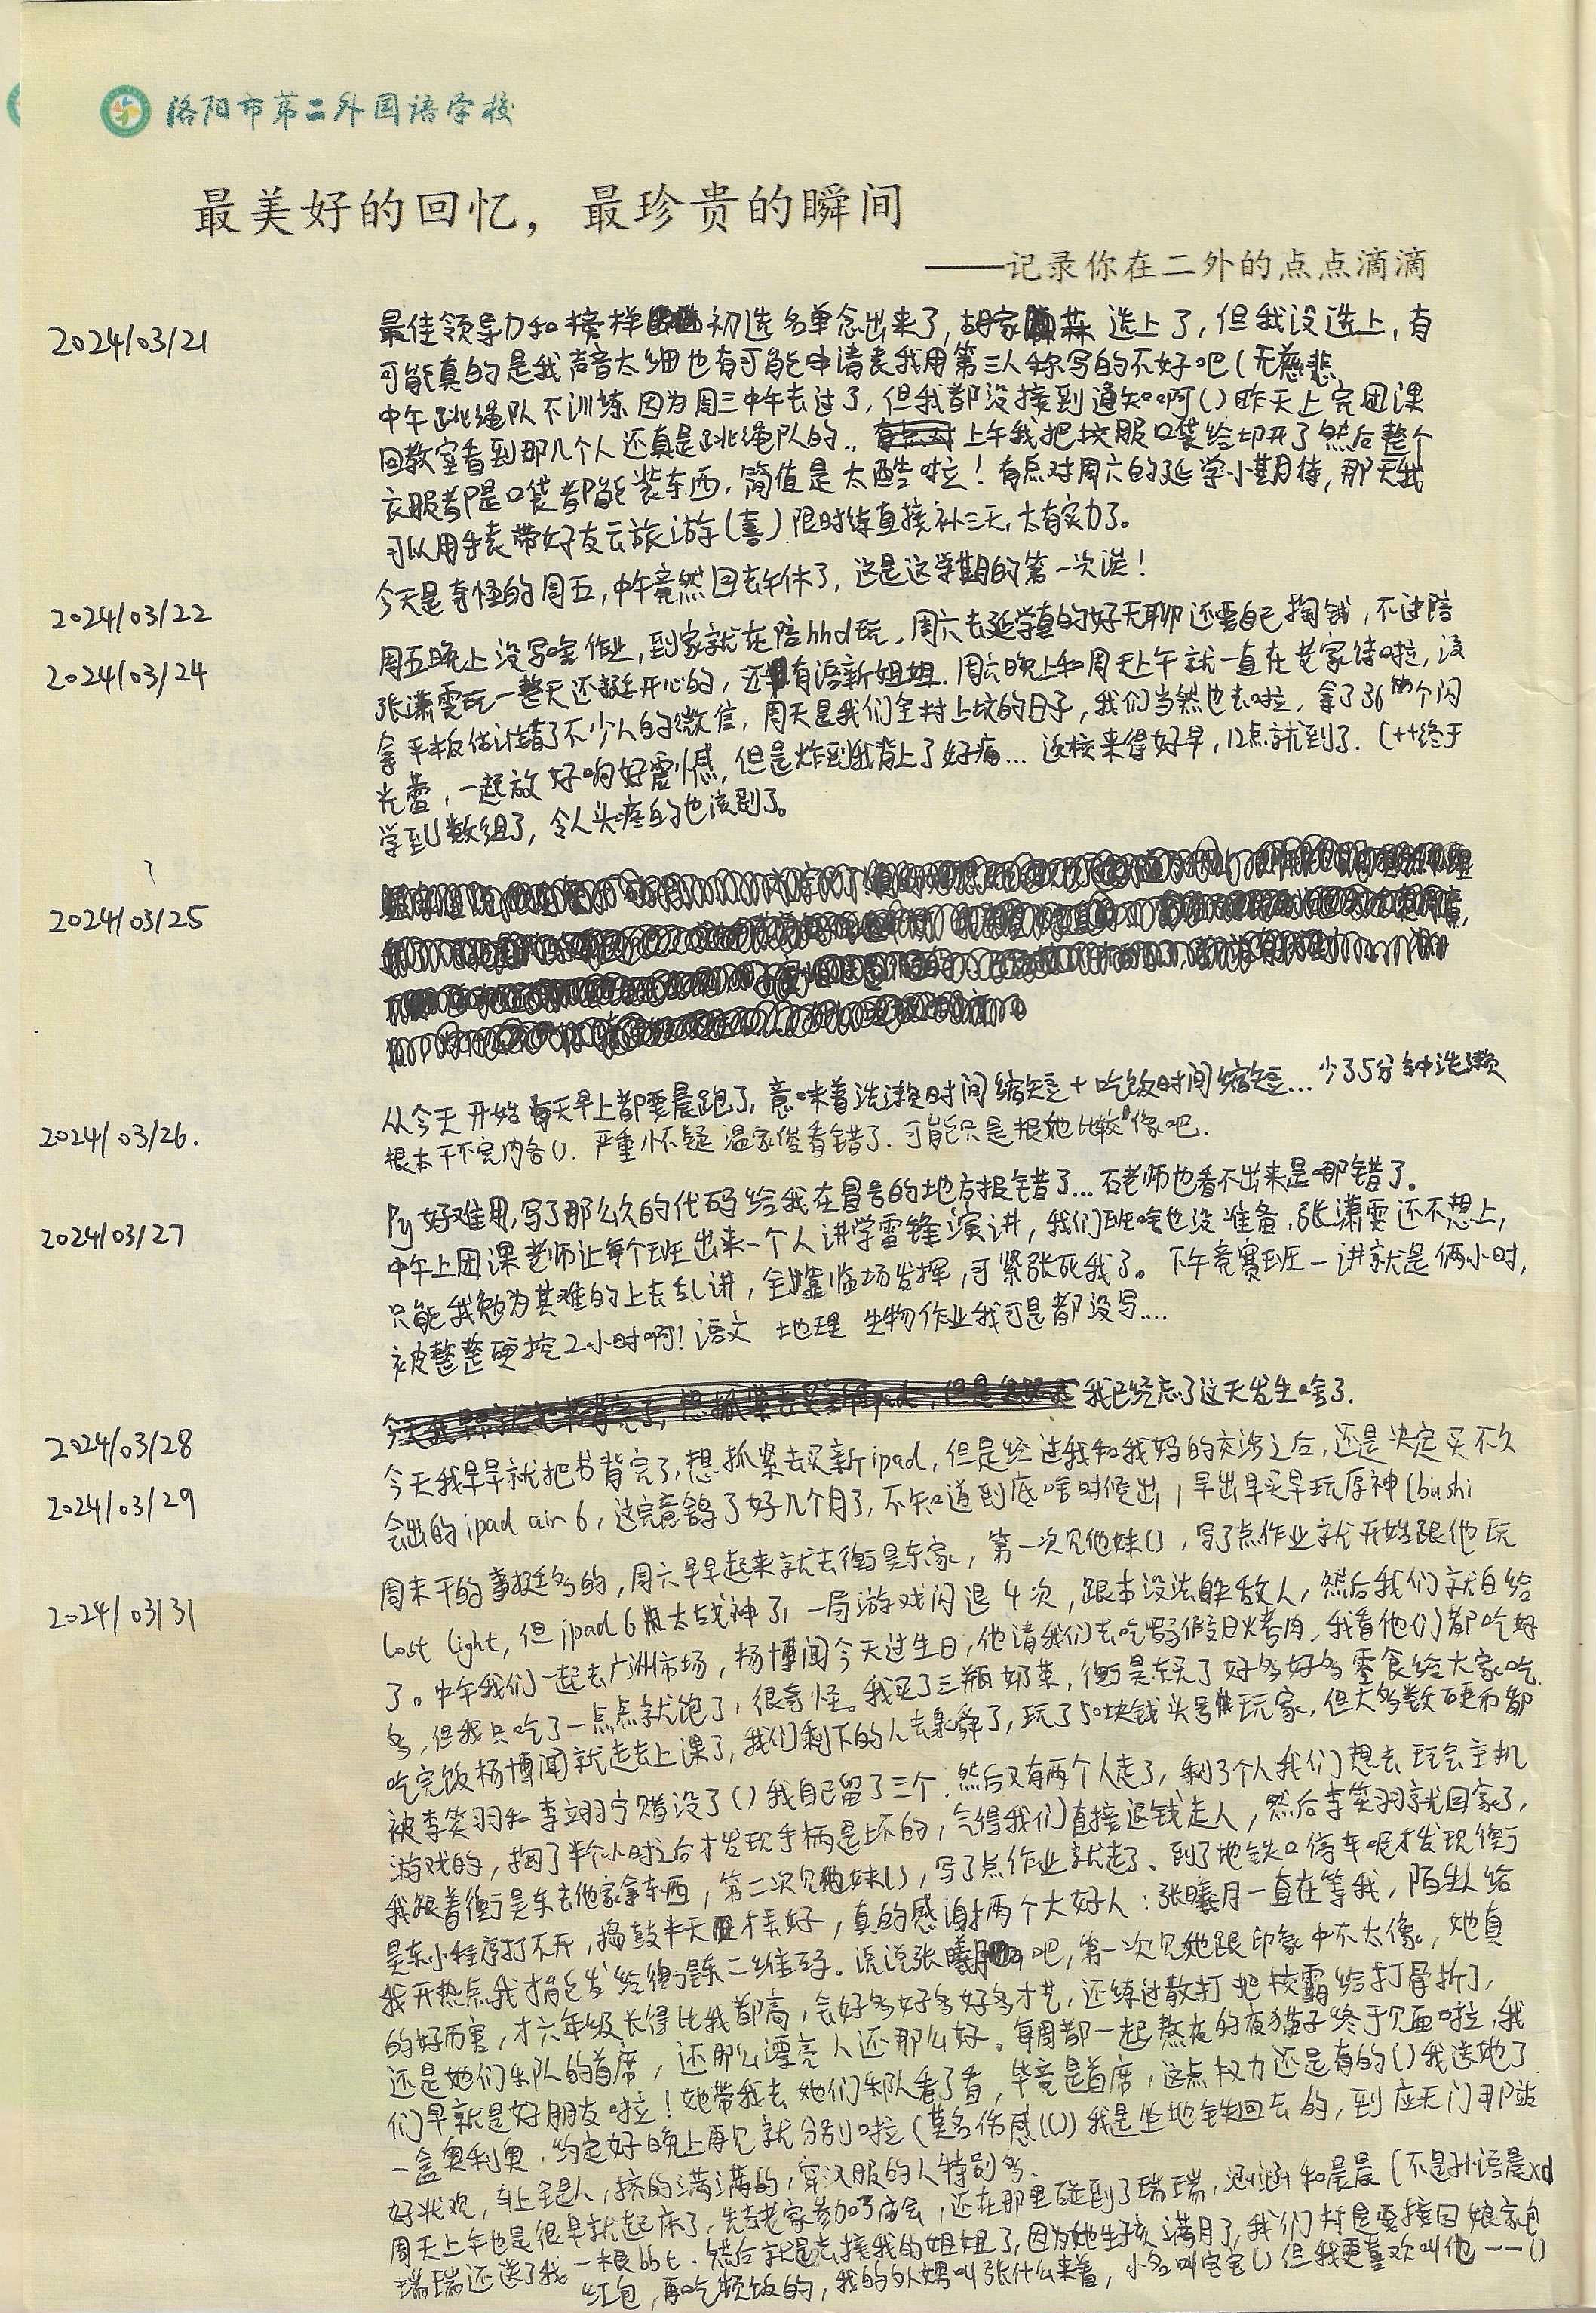 洛阳市第二外国语学校
最美好的回忆，最珍贵的瞬间
——记录你在二外的点点滴滴
2024/03/21
最佳领导力和榜样初选名单念出来了，胡家 选上了，但我没选上，有
可能真的是我声音太细也有可能申请表我用第三人称写的不好吧(无慈悲
中午跳绳队不训练因为周三中午去过了，但我都没接到通知啊()昨天上完团课
回教室看到那几个人还真是跳绳队的.. 上午我把校服口袋给切开了然后整个
衣服都是口袋都能装东西，简值是太酷啦！有点对周六的延学小期待，那天我
可以用手表带好友云旅游(喜)限时练直接补三天，太有实力了。
2024/03/22
今天是奇怪的周五，中午竟然回去午休了，这是这学期的第一次诶！
2024/03/24
周五晚上没写啥作业，到家就在陪hhd玩，周六去延学真的好无聊还要自己掏钱，不过陪
张潇雯玩一整天还挺开心的，还有语新姐姐.周六晚上和周天上午就一直在老家待啦，没
拿平板估计错了不少人的微信，周天是我们全村上坟的日子，我们当然也去啦，拿了36个闪
光雷，一起放好响好震憾，但是炸到我背上了好痛...返校来得好早，12点就到了.C++终于
学到数组了，令人头疼的也该到了。
2024/03/25
2024/03/26.
从今天开始每天早上都要晨跑了，意味着洗漱时间缩短+吃饭时间缩短...少了5分钟洗漱
根本干不完内务().严重怀疑温家俊看错了.可能只是根她比较像吧.
2024/03/27
Py好难用，写了那么久的代码给我在冒号的地方报错了...石老师也看不出来是哪错了。
中午上团课老师让每个班出来一个人讲学雷锋演讲，我们班啥也没准备，张潇雯还不想上，
只能我勉为其难的上去乱讲，全靠临场发挥，可紧张死我了。下午竞赛班一讲就是俩小时，
被整整硬控2小时啊！语文 地理 生物作业我可是都没写....
2024/03/28
我已经忘了这天发生啥了.
2024/03/29
今天我早早就把书背完了，想抓紧去买新ipad，但是经过我和我妈的交涉之后，还是决定买不久
会出的ipad air 6，这完意鸽了好几个月了，不知道到底啥时候出，早出早买早玩原神(bushi
2024/03/31
周末干的事挺多的，周六早早起来就去衡昊东家，第一次见他妹()，写了点作业就开始跟他玩
lost light，但ipad 6太战神了，一局游戏闪退4次，跟本没法躲敌人，然后我们就自给
了。中午我们一起去广州市场，杨博闻今天过生日，他请我们去吃假日烤肉，我看他们都吃好
多，但我只吃了一点点就饱了，很奇怪。我买了三瓶奶茶，衡昊东买了好多好多零食给大家吃.
吃完饭杨博闻就走去上课了，我们剩下的人去泉舜了，玩了50块钱头号玩家，但大多数硬币都
被李笑羽和李翊宁赌没了()我自己留了三个.然后又有两个人走了，剩了个人我们想去玩会主机
游戏的，掏了半个小时之后才发现手柄是坏的，气得我们直接退钱走人，然后李笑羽就回家了，
我跟着衡昊东去他家拿东西，第二次见他妹()，写了点作业就走了、到了地铁口停车呢才发现衡
昊东小程序打不开，捣鼓半天才弄好，真的感谢两个大好人：张曦月一直在等我，陌生人给
我开热点我才能发给衡昊东二维码。说说张曦月吧，第一次见她跟印象中不太像，她真
的好厉害，才六年级长得比我都高，会好多好多好多才艺，还练过散打把校霸给打骨折了，
还是她们乐队的首席，还那么漂亮人还那么好。每周都一起熬夜的夜猫子终于见面啦，我
们早就是好朋友啦！她带我去她们乐队看了看，毕竟是首席，这点权力还是有的()我送她了
一盒奥利奥，约定好晚上再见就分别啦(莫名伤感())我是坐地铁回去的，到应天门那站
好壮观，车上全是人，挤的满满的，穿汉服的人特别多.
周天上午也是很早就起床了，先去老家参加了庙会，还在那里碰到了瑞瑞，涵涵和晨晨(不是孙语晨xd
瑞瑞还送了我一根bbt.然后就是去接我的姐姐了，因为她生孩满月了，我们村是要接回娘家包
红包，再吃顿饭的，我的外甥叫张什么来着，小名叫宝宝()但我更喜欢叫他一一()